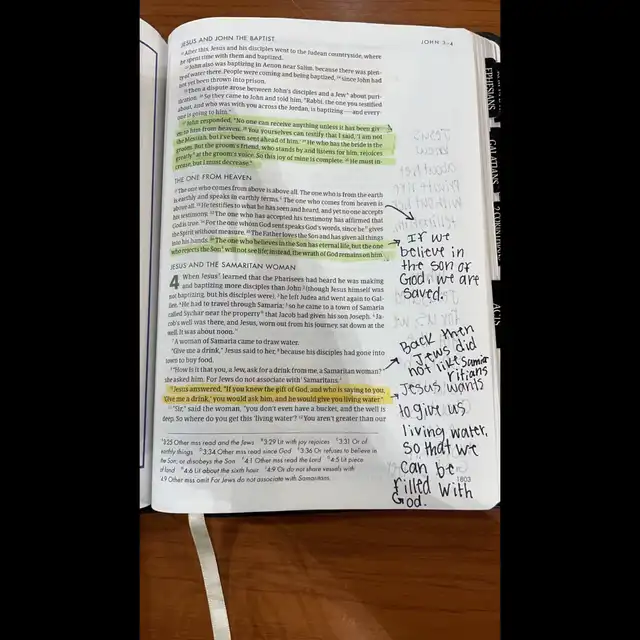 JESUS AND JOHN THE BAPTIST
JOHN 3–4
22 After this, Jesus and his disciples went to the Judean countryside, where
he spent time with them and baptized.
23 John also was baptizing in Aenon near Salim, because there was plen-
ty of water there. People were coming and being baptized, 24 since John had
not yet been thrown into prison.
25 Then a dispute arose between John's disciples and a Jew about puri-
fication. 26 So they came to John and told him, "Rabbi, the one you testified
about, and who was with you across the Jordan, is baptizing — and every-
one is going to him."
27 John responded, "No one can receive anything unless it has been giv-
en to him from heaven. 28 You yourselves can testify that I said, 'I am not
the Messiah, but I've been sent ahead of him.' 29 He who has the bride is the
groom. But the groom's friend, who stands by and listens for him, rejoices
greatly at the groom's voice. So this joy of mine is complete. 30 He must in-
crease, but I must decrease."
THE ONE FROM HEAVEN
31 The one who comes from above is above all. The one who is from the earth
is earthly and speaks in earthly terms. The one who comes from heaven is
above all. 32 He testifies to what he has seen and heard, and yet no one accepts
his testimony. 33 The one who has accepted his testimony has affirmed that
God is true. 34 For the one whom God sent speaks God's words, since he gives
the Spirit without measure. 35 The Father loves the Son and has given all things
into his hands. 36 The one who believes in the Son has eternal life, but the one
who rejects the Son will not see life; instead, the wrath of God remains on him.
JESUS AND THE SAMARITAN WOMAN
4 When Jesus learned that the Pharisees had heard he was making
and baptizing more disciples than John 2 (though Jesus himself was
not baptizing, but his disciples were), 3 he left Judea and went again to Gal-
ilee. 4 He had to travel through Samaria; 5 so he came to a town of Samaria
called Sychar near the property that Jacob had given his son Joseph. 6 Ja-
cob's well was there, and Jesus, worn out from his journey, sat down at the
well. It was about noon.
7 A woman of Samaria came to draw water.
"Give me a drink," Jesus said to her, 8 because his disciples had gone into
town to buy food.
9 "How is it that you, a Jew, ask for a drink from me, a Samaritan woman?"
she asked him. For Jews do not associate with Samaritans.
10 Jesus answered, "If you knew the gift of God, and who is saying to you,
'Give me a drink,' you would ask him, and he would give you living water."
11 "Sir," said the woman, "you don't even have a bucket, and the well is
deep. So where do you get this 'living water'? 12 You aren't greater than our
3:25 Other mss read and the Jews 3:29 Lit with joy rejoices 3:31 Or of
earthly things 3:34 Other mss read since God 3:36 Or refuses to believe in
the Son, or disobeys the Son 4:1 Other mss read the Lord 4:5 Lit piece
of land 4:6 Lit about the sixth hour 4:9 Or do not share vessels with
4:9 Other mss omit For Jews do not associate with Samaritans.
1803
If we
believe in
the son of
God, we are
saved.
Back then
Jews did
not like Samar
ritians
Jesus wants
to give us
living water,
so that we
can be
filled with
God.
EPHESIANS
GALATIANS
2 CORINTHIANS
ACTS